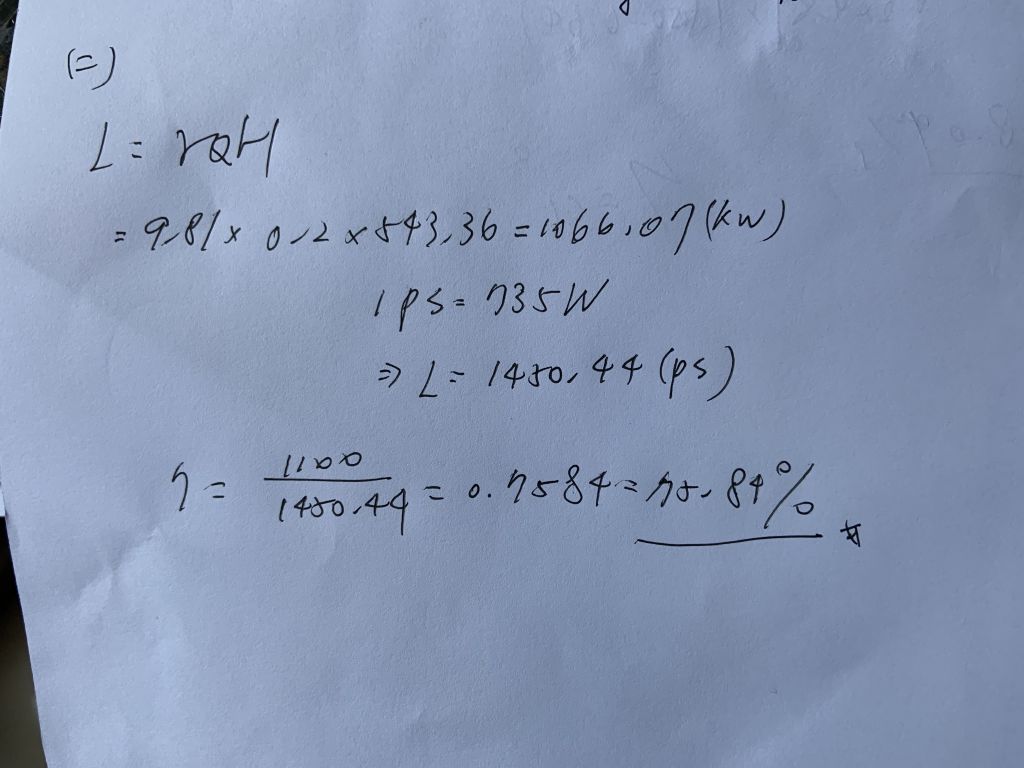 (二)
L = γQH
= 9.81 × 0.2 × 543.36 = 1066.07 (kw)
1 ps = 735W
⇒ L = 1450.44 (ps)
η = 1100/1450.44 = 0.7584 = 75.84%